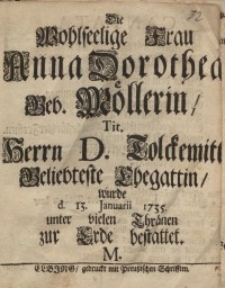 Die
Wohlseelige Frau
Anna Dorothea
Geb. Möllerin/
Tit.
Herrn D. Tolckemitt
Geliebteste Ehegattin/
wurde
d. 13. Januarii 1735.
unter vielen Thränen
zur Erde bestattet.
M.
ELBING/ gedruckt mit Preußischen Schrifften.